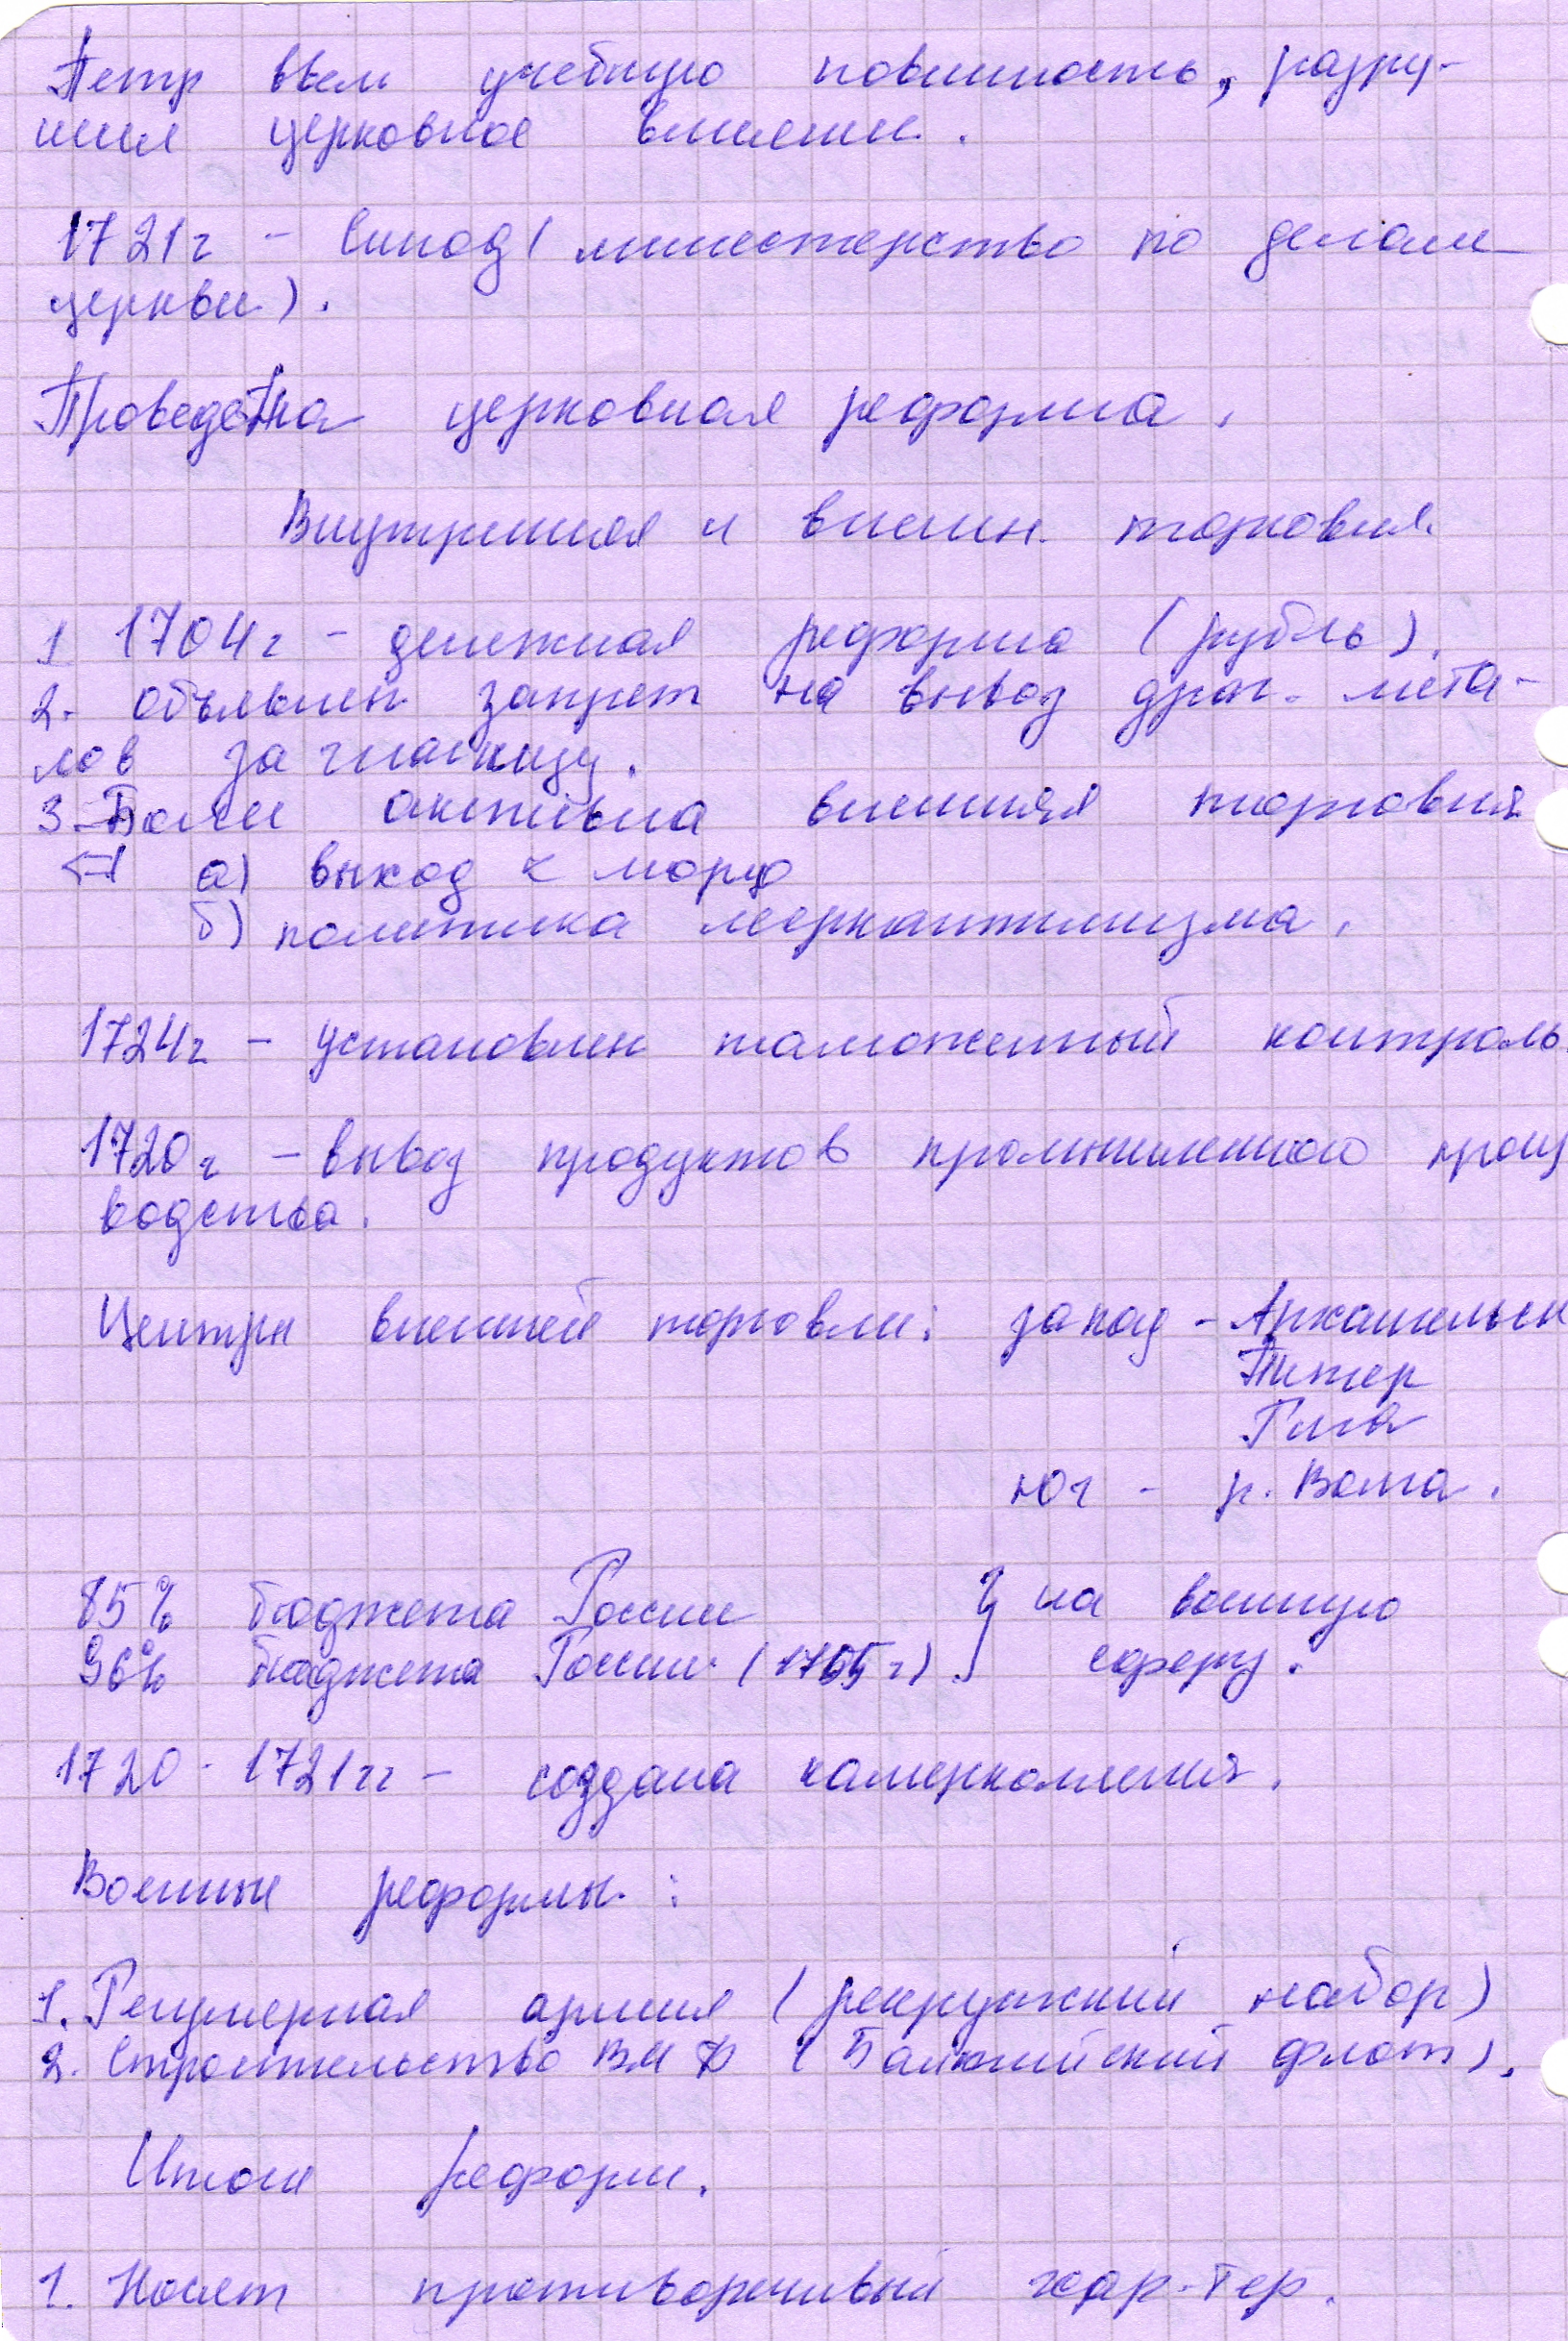 Петр ввел учебную повинность, разру-
шил церковное влияние.
1721г - Синод (министерство по делам
церкви).
Проведена церковная реформа.
Внутренняя и внешн. торговля.
1 1704г - денежная реформа (рубль).
2. Объявлен запрет на вывоз драг. мета-
лов за границу.
3. Более активна внешняя торговля
⇐ а) выход к морю
б) политика меркантилизма.
1724г - установлен таможенный контроль
1720г - вывоз продуктов промышленного произ
водства.
Центры внешней торговли: запад - Архангельск
Питер
Рига
юг - р. Волга.
85% бюджета России } на военную
96% бюджета России (1705г) } сферу.
1720 - 1721гг - создана камерколлегия.
Военные реформы:
1. Регулярная армия (рекрутский набор)
2. Строительство ВМФ (Балтийский флот).
Итоги реформ.
1. Носят противоречивый хар-тер.